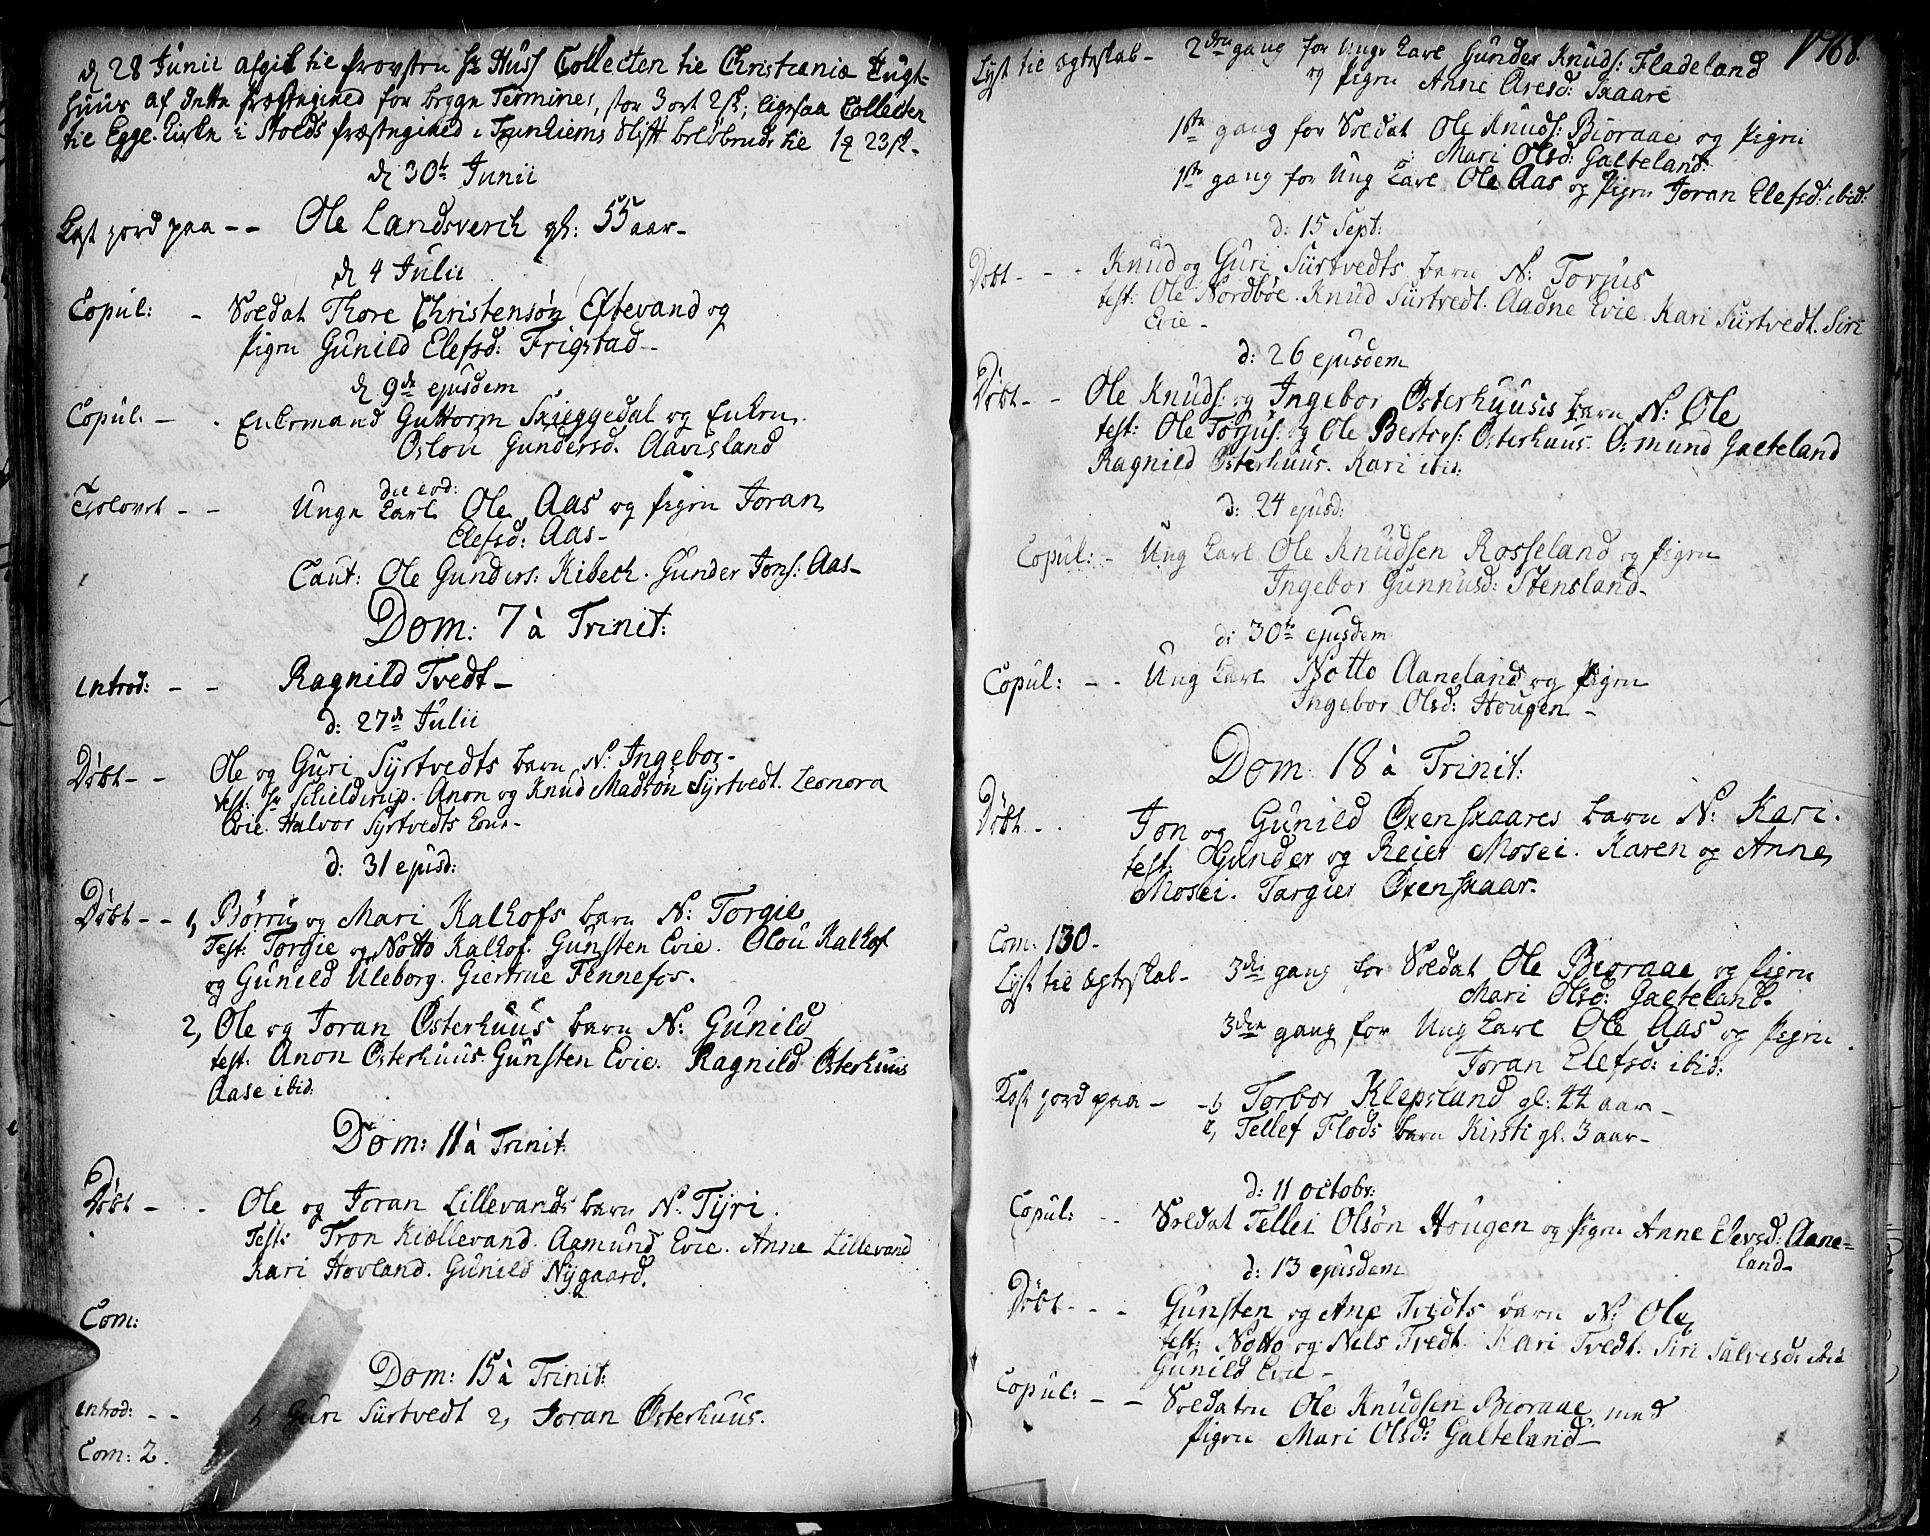 d 28 Junii afgik til Provsten Hr Huss Collecten til Christiania Tugt-
huus af dette Præstegield for begge Terminer, stor 3 ort 2 s; ligesaa Collecten
til Egge Kirke i Stods Præstegield i Trunhiems Stift beløbende til 1 23 s.
d 30te Junii
Kast jord paa -- Ole Landsverch gl: 55 aar-
d 4 Julii
Copul: - Soldat Thore Christensøn Eftevand og
Pigen Gunild Elefsd: Frigstad-
d 9de ejusdem
Copul: - Enkemand Guttorm Skieggedal og Enken
Oslou Gundersd. Aavisland
Trolovet -- Unge Karl Ole Aas og Pigen Joran
Elefsd: Aas-
Caut: Ole Gunders: Kibech. Gunder Jons: Aas-
Dom: 7 à Trinit:
introd: -- Ragnild Tvedt-
d: 27de Julii
Døbt-- Ole og Guri Syrtvedts barn N: Ingebor-
test: Hr Schielderup. Anon og Knud Madsøn Syrtvedt. Leonora
Evie. Halvor Syrtvedts Kone-
d: 31 ejusd:
Døbt-- 1, Børru og Mari Kalhofs barn N: Torgie
Test: Torgie og Notto Kalhof. Gunsten Evie. Olou Kalhof
og Gunild Uleborg. Giertrue Fennefos.
2, Ole og Joran Osterhuus barn N: Gunild
test: Anon Osterhuus. Gunsten Evie. Ragnild Osterhuus
Aase ibid.
Dom: 11 à Trinit:
Døbt -- Ole og Joran Lillevands barn N: Tyri.
Test: Tron Kiællevand. Aamund Evie. Anne Lillevand
Kari Hovland. Gunild Nygaard.
Com:
Dom: 15 à Trinit:
introd: -- 1, Guri Siirtvedt 2, Joran Osterhuus.
Com: 2.
1768.
Lyst til Egteskab- 2den gang for Unge Karl Gunder Knuds: Fladeland
og Pigen Anne Aresd: Skaare
1ste gang for Soldat Ole Knuds: Bioraae og Pigen
Mari Olsd: Galteland:
1ste gang for Ung Karl Ole Aas og Pigen Joran Elefsd: ibid:
d: 15 Sept:
Døbt- -- Knud og Guri Siirtvedts barn N: Torjus
test: Ole Nordbøe. Knud Siirtvedt. Aadne Evie. Kari Siirtvedt. Siri
Evie-
d: 26 ejusdem
Døbt-- Ole Knuds: og Ingebor Osterhuuses barn N: Ole
test: Ole Torjus: og Ole Bertovs: Osterhuus. Osmund Galteland
Ragnild Osterhuus. Kari ibid:
d: 24 ejusd:
Copul: - Ung Karl Ole Knudsen Rosseland og Pigen
Ingebor Gunnusd: Stensland-
d: 30te ejusdem
Copul: -- Ung Karl Notto Aaneland og Pigen
Ingebor Olsd: Hougen-
Dom: 18 à Trinit:
Døbt-. Jon og Gunild Oxenskaares barn N: Kari.
test: Gunder og Reier Mosei. Karen og Anne
Mosei. Targier Oxenskaar.
Com: 130-
Lyst til Egteskab- 3die gang for Soldat Ole Bioraae og Pigen
Mari Olsd: Galteland.
3die gang for Ung Karl Ole Aas og Pigen
Joran Elefsd: ibid:
Kast jord paa- 1, Torbor Klepsland gl: 44 aar-
2, Tellef Flods barn Kirsti gl. 3 aar-
d: 11 octobr:
Copul: -- Soldat Tellei Olsøn Hougen og Pigen Anne Elevsd: Aane-
land-
d: 13 ejusdem
Døbt- -- Gunsten og Ane Tvedts barn N: Ole
test: Notto og Nels Tvedt. Kari Tvedt. Siri Salvesd: ibid
Gunild Evie-
Copul: -- Soldaten Ole Knudsen Bioraae med
Pigen Mari Olsd: Galteland-